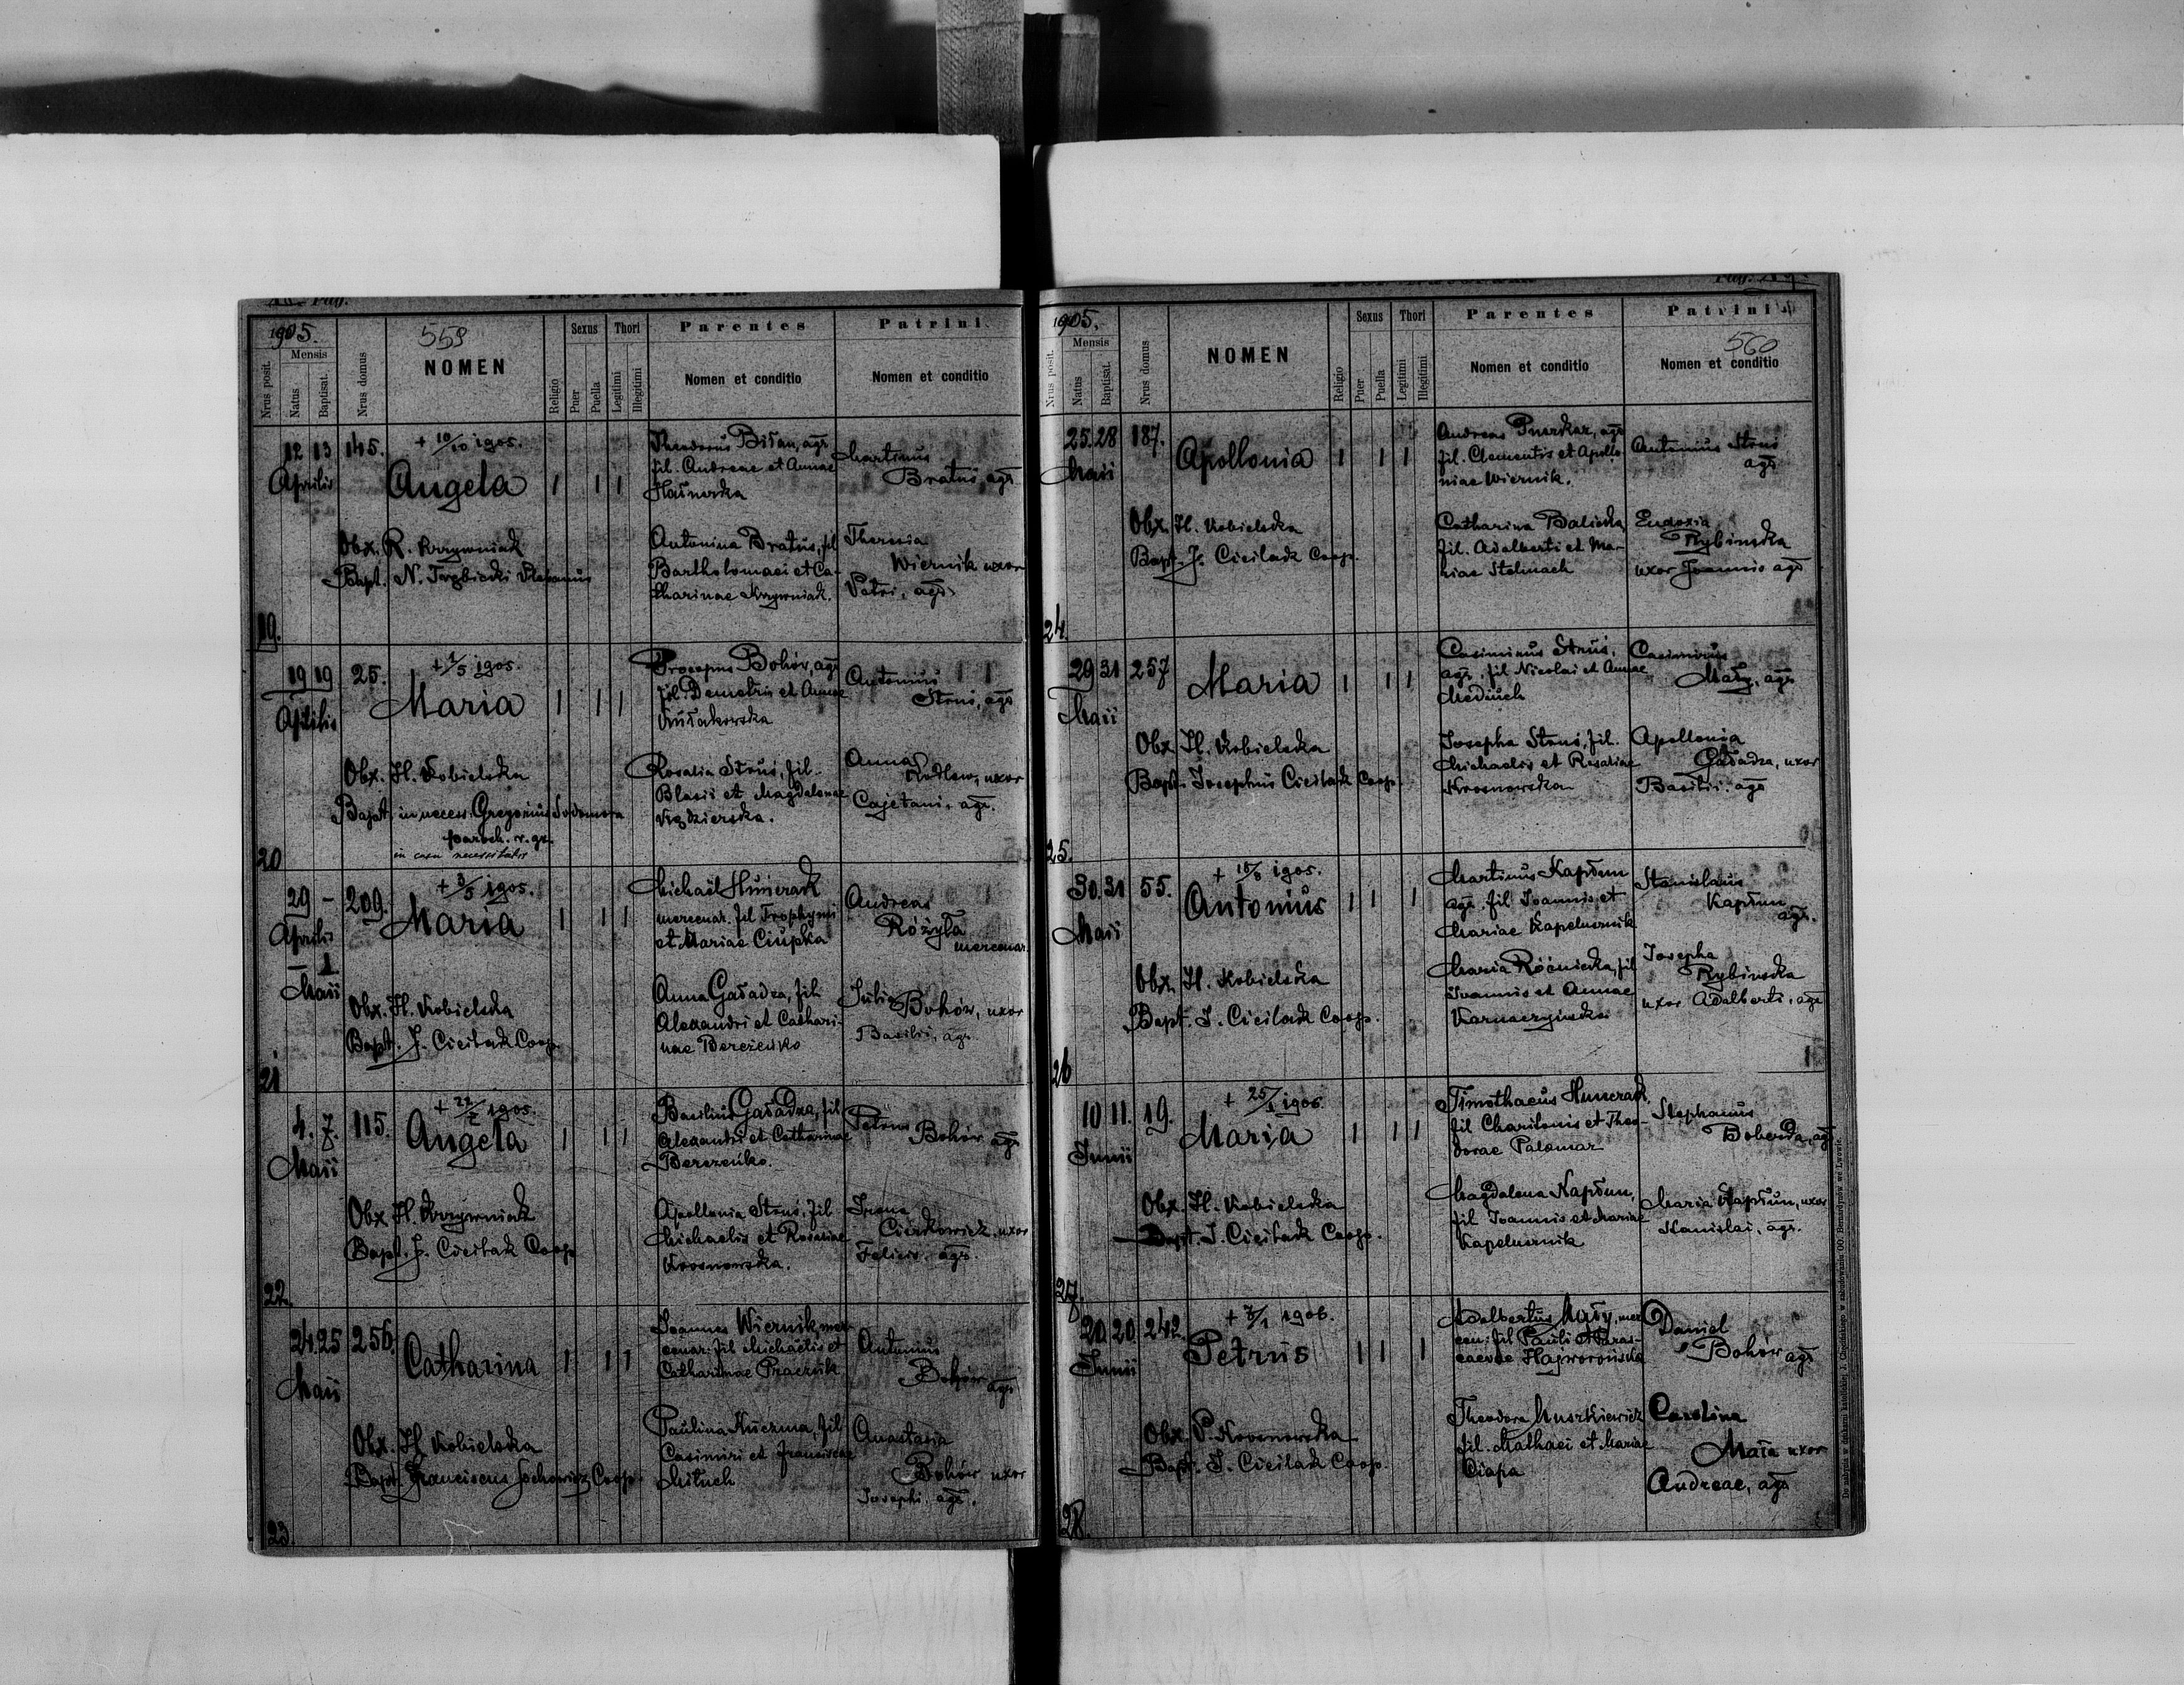 1905.
559
Nrus posit.
Mensis
Natus
Baptisat.
Nrus domus
NOMEN
Religio
Sexus
Puer
Puella
Thori
Legitimi
Illegitimi
Parentes
Nomen et conditio
Patrini.
Nomen et conditio
19.
12 13
Aprilis
145.
+ 10/10 1905.
Angela
1 1 1
Obx. R. Krzywniak
Bapt. N. Plebanus
Theodorus Biłan, agr.
fil. Andreae et Annae
Antonina Bratuś, fil
Bartholomaei et Ca-
tharinae Krzywniak.
Martinus
Bratuś, agr.
Theresia
Wiernik uxor
Petri, agr.
20
19 19
Aprilis
25.
+ 1/5 1905.
Maria
1 1 1
Obx. H. Kobielska
Bapt. in necess. Gregorius Sodomora
paroch. r. gr.
in casu necessitatis
Procopius Bohów, agr
fil. Demetrii et Annae
Kułakowska
Rosalia Struś, fil.
Blasii et Magdalenae
Antonius
Struś, agr
Anna
uxor
Cajetani, agr.
21
29 –
Aprilis
– 1
Maii
209.
+ 3/5 1905.
Maria
1 1 1
Obx. H. Kobielska
Bapt. J. Cieilak Coop.
Michaël Hunerak
mercenar. fil Trophymi
et Mariae Ciupka
Anna Gaładza, fil
Alexandri et Cathari-
nae Bereżeńko
Andreas
Różyła
mercenar.
Julia
Bohów, uxor
Basilii, agr.
22.
4. 7.
Maii
115.
1905.
Angela
1 1 1
Obx. H. Krzywniak
Bapt. J. Cieilak Coop
Basilius Gaładza, fil
Alexandri et Catharinae
Bereżeńko.
Apollonia Struś, fil
Michaelis et Rosaliae
Krosnowska.
Petrus
Bohów agr.
Irena
Cieńkowicz, uxor
Felicis, agr.
23.
24. 25
Maii
256.
Catharina
1 1 1
Obx. H. Kobielska
Bapt. Franciscus Coop.
Joannes Wiernik, mer-
cenar. fil Michaelis et
Catharinae Praczuk
Paulina Kuczma, fil
Casimiri et Franciscae
Mituch
Antonius
Bohów
agr.
Anastasia
Bohów uxor
Josephi, agr.
1905.
560
Nrus posit.
Mensis
Natus
Baptisat.
Nrus domus
NOMEN
Religio
Sexus
Puer
Puella
Thori
Legitimi
Illegitimi
Parentes
Nomen et conditio
Patrini
Nomen et conditio
24.
25. 28
Maii
187.
Apollonia
1 1 1
Obx. H. Kobielska
Bapt. J. Cieilak Coop.
Andreas agr
fil. Clementis et Apollo-
niae Wiernik.
Catharina Balicka
fil. Adalberti et Ma-
riae Stelmach
Antonius Struś
agr
Eudoxia
Rybińska
uxor Joannis agr
25.
29 31
Maii
257
Maria
1 1 1
Obx. H. Kobielska
Bapt. Josephus Cieilak Coop.
Casimirus Struś,
agr. fil Nicolai et Annae
Mediuch
Josepha Struś, fil.
Michaelis et Rosaliae
Krosnowska
Casimirus
Mały, agr
Apollonia
Gaładza, uxor
Basilii, agr
26
30. 31
Maii
55.
1905.
Antonius
1 1 1
Obx. H. Kobielska
Bapt. J. Cieilak Coop.
Martinus Kapłun
agr. fil Joannis et
Mariae Kapelusznik
Maria Róźnicka, fil
Joannis et Annae
Karnaczyńska
Stanislaus
Kapłun
agr.
Josepha
Rybińska
uxor Adalberti, agr
27.
10 11.
Junii
19.
1906.
Maria
1 1 1
Obx. H. Kobielska
Bapt. J. Cieilak Coop.
Timothaeus Hunerak,
fil Charitonis et Theo-
dorae Palamar
Magdalena Kapłun,
fil Joannis et Mariae
Kapelusznik
Stephanus
Boberda, agr
Maria Kapłun, uxor
Stanislai, agr.
28.
20 20
Junii
242.
+ 7/1 1906.
Petrus
1 1 1
Obx. P. Krosnowska
Bapt. J. Cieilak Coop.
Adalbertus Mały, mer
cen. fil Pauli et Paras-
caevae Hajworońska
Theodora Muszkiewicz
fil. Mathaei et Mariae
Ciapa
Daniel
Bohów agr
Carolina
Mała uxor
Andreae, agr
Do nabycia w drukarni katolickiej J. Chęcińskiego w zabudowaniu OO. Bernardynów we Lwowie.